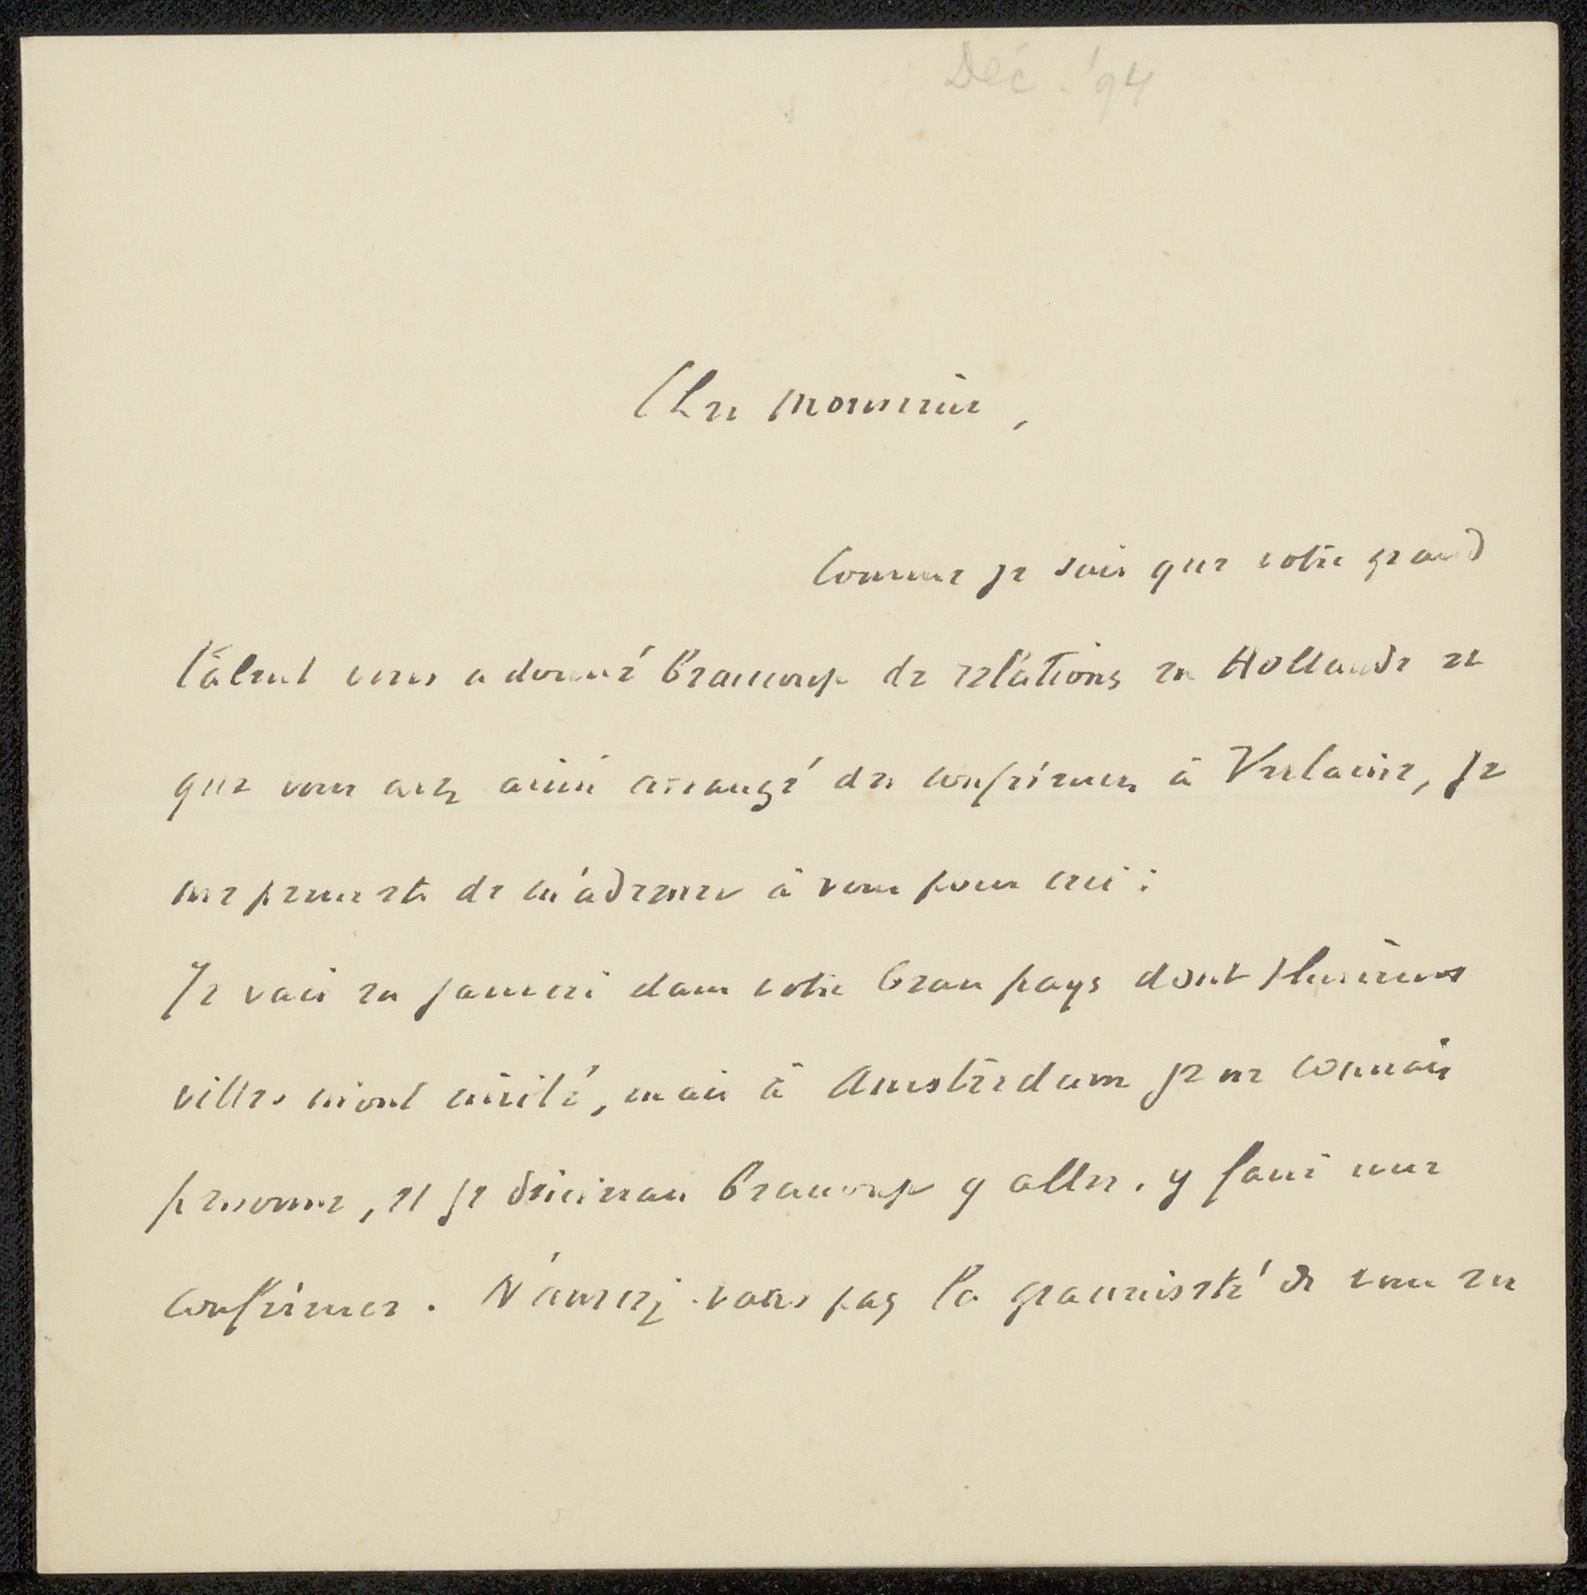 Déc. '94
Cher monsieur,
Comme je sais que votre grand
talent vous a donné beaucoup de relations en Hollande et
que vous avez ainsi arrangé des conférences à Verlaine, je
me permets de m'adresser à vous pour ceci :
Je vais en janvier dans votre beau pays dont plusieurs
villes m'ont invité, mais à Amsterdam je ne connais
personne, et je désirerau beaucoup y aller, y faire une
conférence. N'auriez-vous pas la gracieuseté de vous en